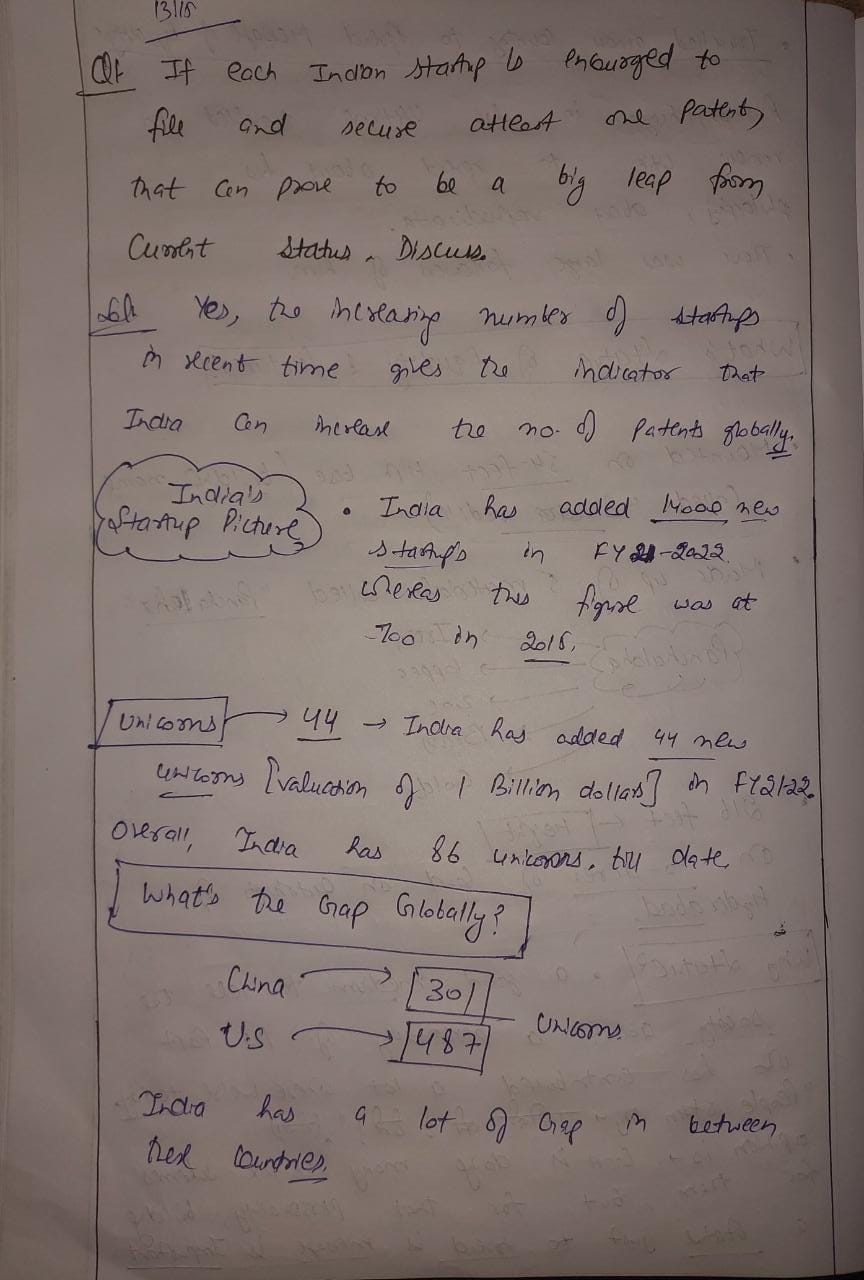 Q1 If each Indian startup is encouraged to
file and secure atleast one patent,
that can prove to be a big leap from
Current Status. Discuss.
Sol: Yes, the increasing number of startups
in recent time gives the indicator that
India can increase the no. of Patents globally.
India's
Startup Picture
• India has added 14000 new
startup's in FY 21-2022.
whereas this figure was at
700 in 2016.
Unicorns → 44 → India has added 44 new
unicorns [valuation of 1 Billion dollars] in FY21-22.
Overall, India has 86 unicorns, till date.
What's the Gap Globally?
China → 301
U.S → 487
Unicorns.
India has a lot of Gap in between
these countries.